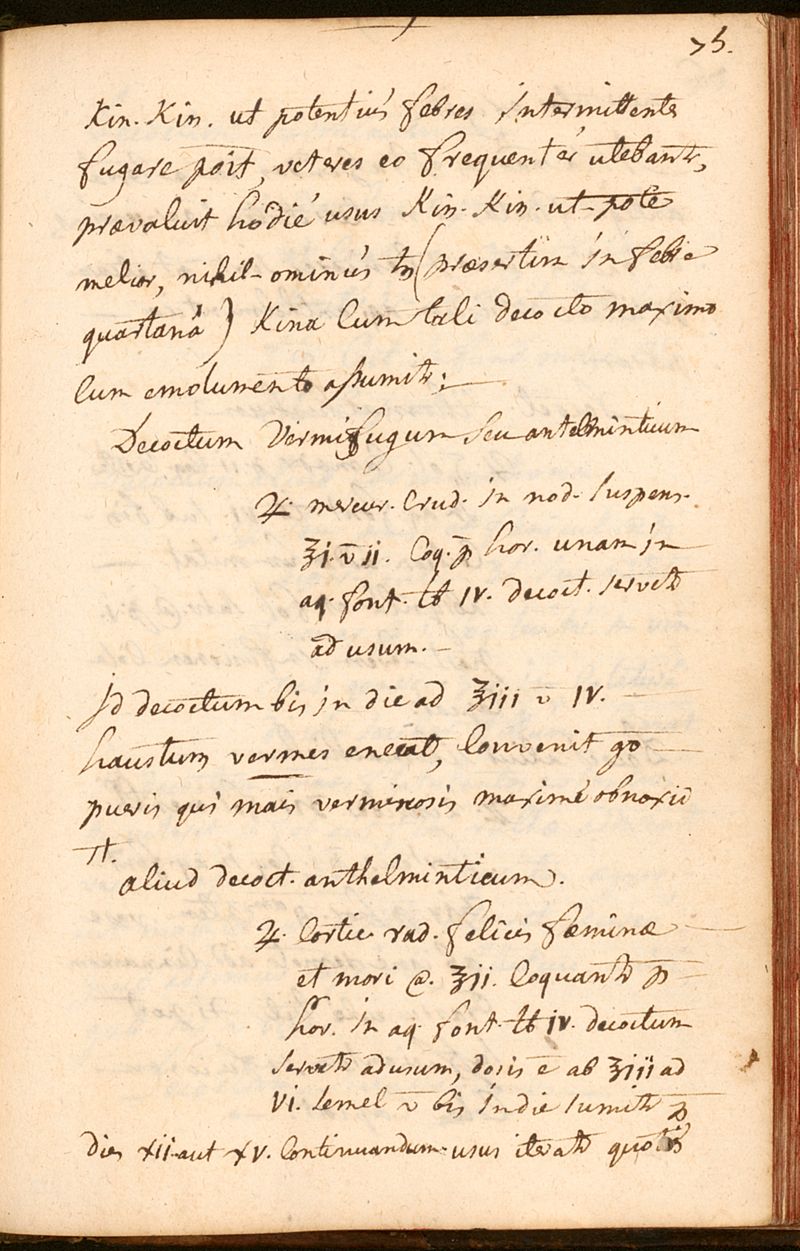 75.
Kin. Kin. ut potentius febres intermittentes
fugare poit, veteres eo frequenter utebantr,
praevaluit hodié usus Kin. Kin. ut-pote
melior, nihil-ominùs tn (praesertim in febre
quartanâ) Kina cum tali decocto maximo
cum emolumento assumitr:
Decoctum Vermifugum seu antelminticum
♃. mercur. Crud. in nod. suspens.
℥i. v̄ ii. Coq. p̄ hor. unam in
aq. font. ℔ IV. decoct. servetr
ad usum. —
Id decoctum bis in die ad ℥iii v̄ IV.
haustum vermes enecat, Convenit go
pueris qui mais verminosis maximé obnoxii
st.
aliud decoct. anthelminticum.
♃. Cortic rad. felicis foeminae
et mori a. ℥ii. Coquantr p̄
hor. in aq. font. ℔ iv. decoctum
servetr ad usum, dosis ē ab ℥iii ad
vi. semel v̄ bis in die sumitr p̄
dies xii. aut xv. Continuandum. usus iteratr